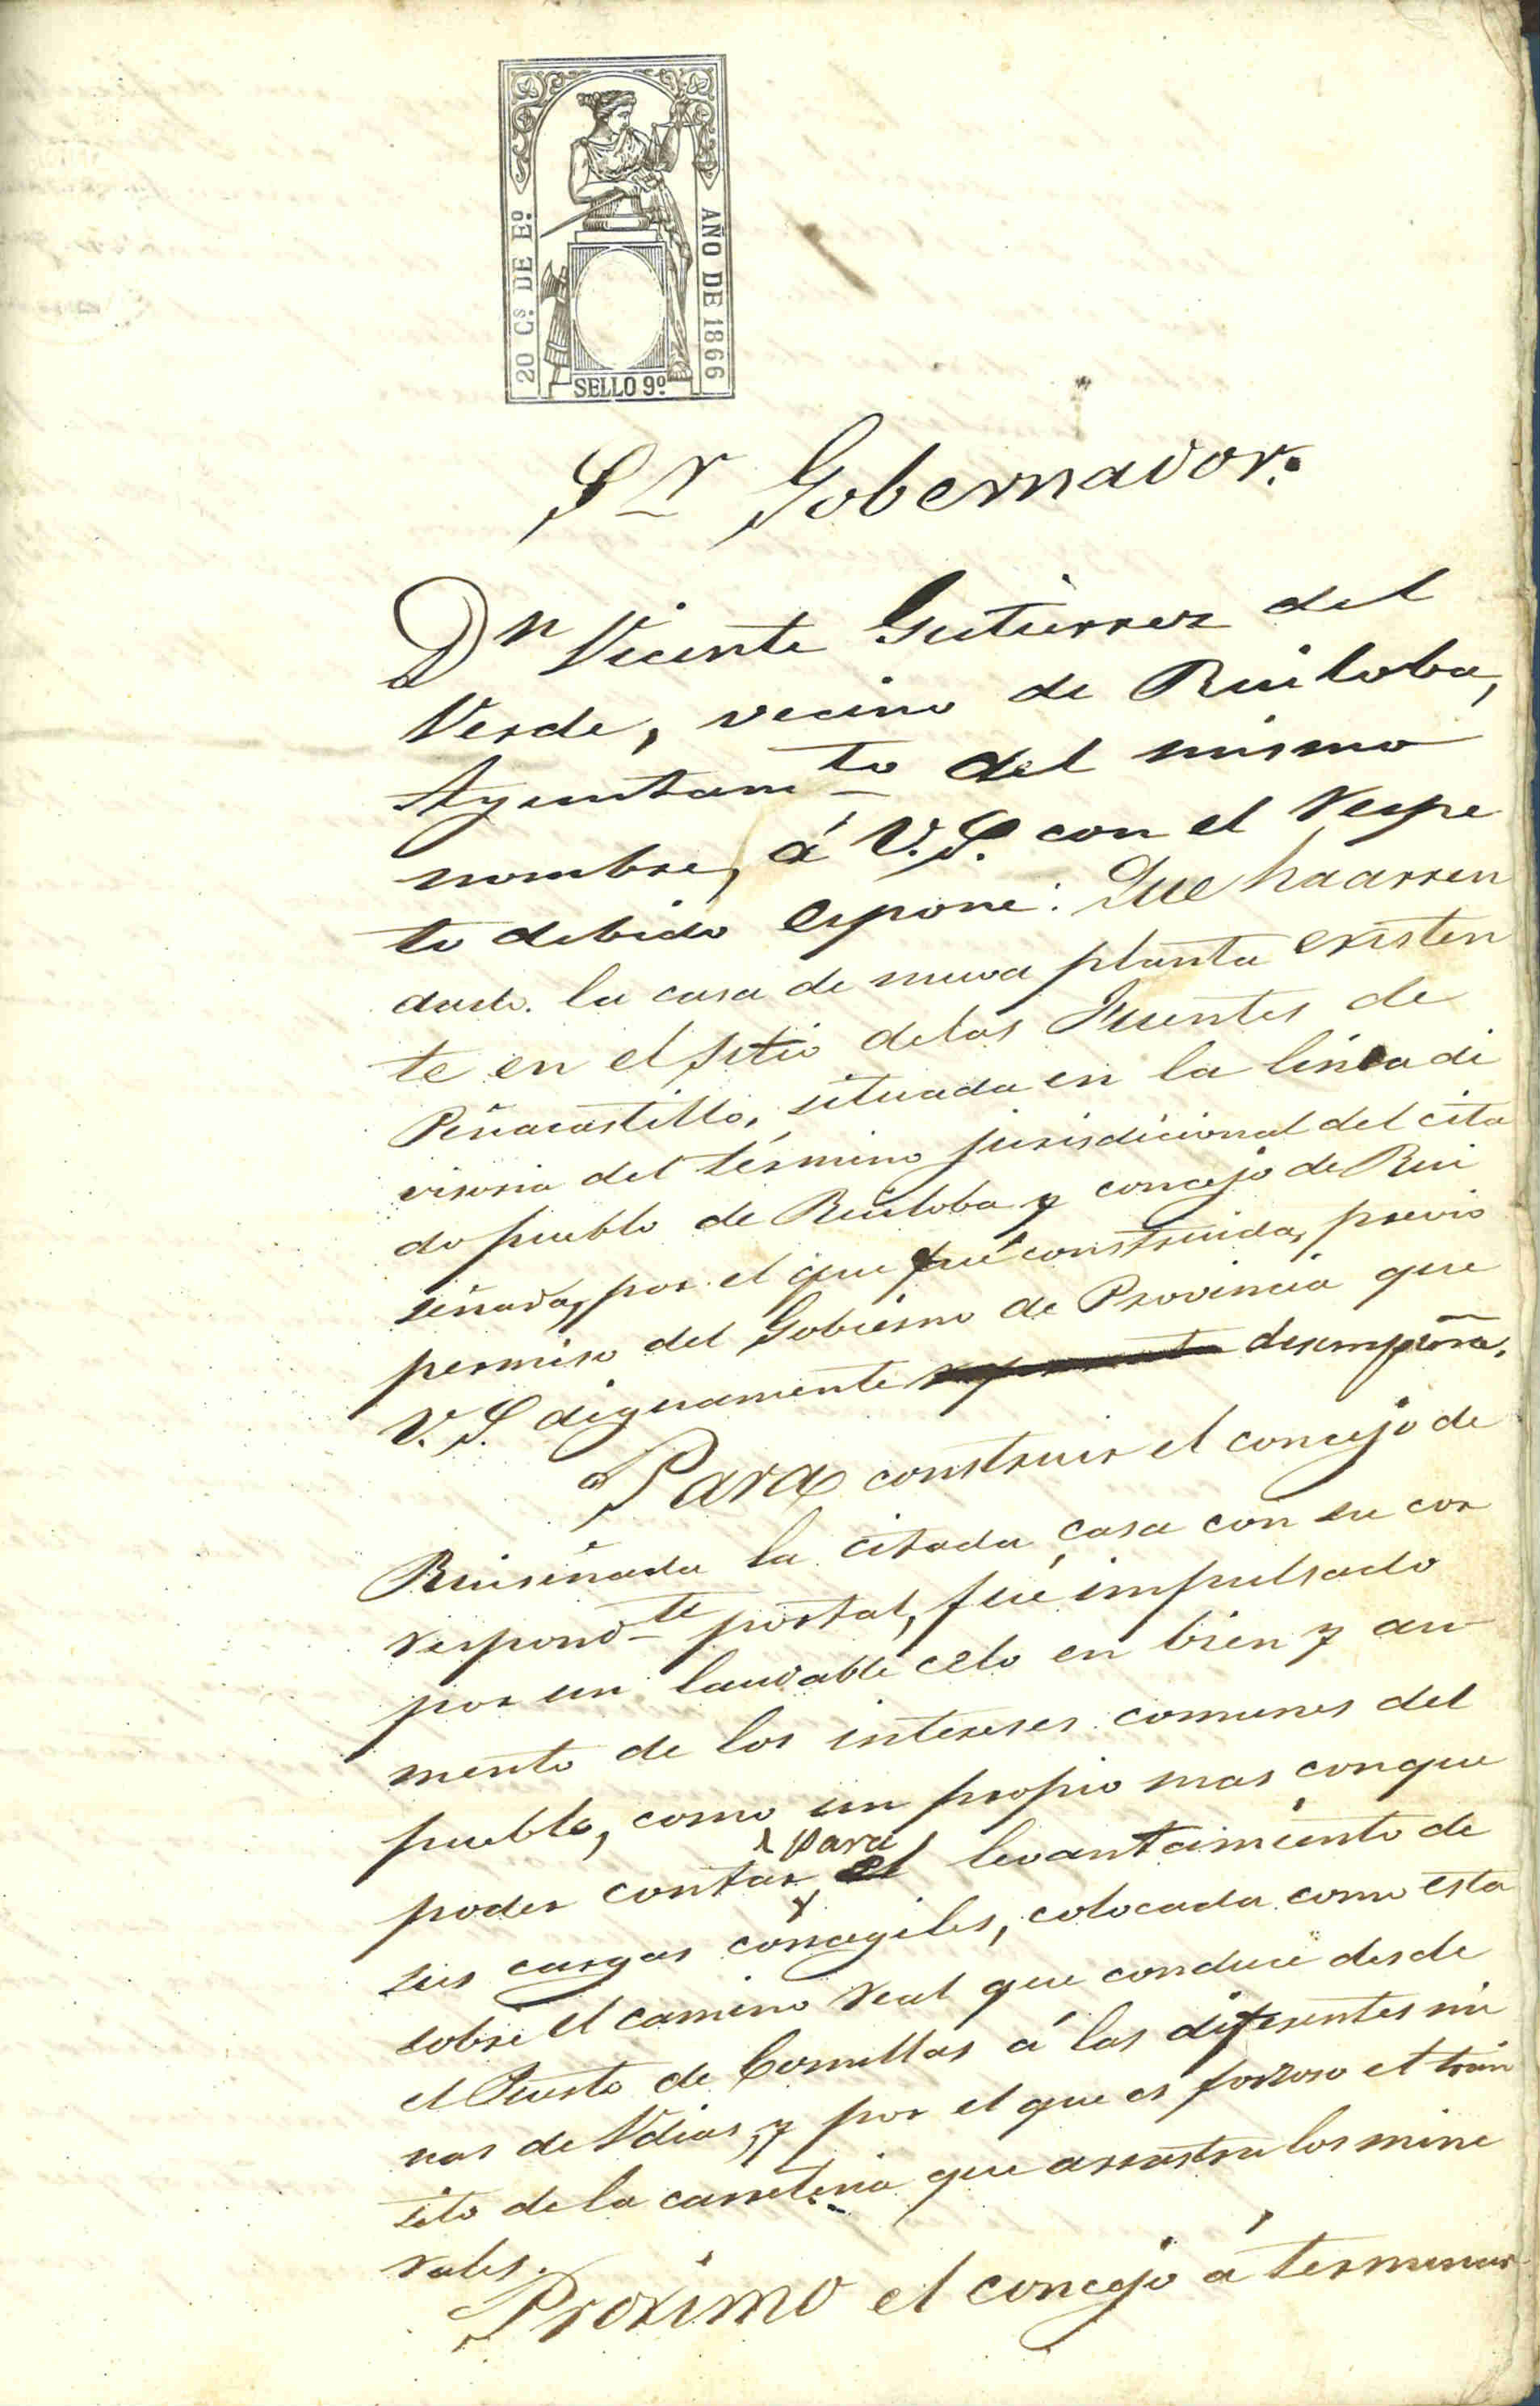 20 Cs. DE Eº.
AÑO DE 1866
SELLO 9º.
Sr Gobernador.
Dn Vicente Gutierrez del
Verde, vecino de Ruiloba,
Ayuntamto del mismo
nombre, á V.S. con el respe
to debido espone: Que ha arren
dado la casa de nueva planta existen
te en el sitio de las Fuentes de
Peñacastillo, situada en la linea di
visoria del término jurisdicional del cita
do pueblo de Ruiloba y concejo de Rui
señada, por el que fué construida, previo
permiso del Gobierno de Provincia que
V.S. dignamente desempeña.
Para construir el concejo de
Ruiseñada la citada casa con su cor
respondte portal, fué impulsado
por un laudable celo en bien y au
mento de los intereses comunes del
pueblo, como un propio mas conque
poder contar para el levantamiento de
sus cargas concegiles, colocada como esta
sobre el camino real que conduce desde
el Puerto de Comillas á las diferentes mi
nas de Udias, y por el que es forzoso el trán
sito de la carretería que arrastra los mine
rales.
Proximo el concejo á terminar